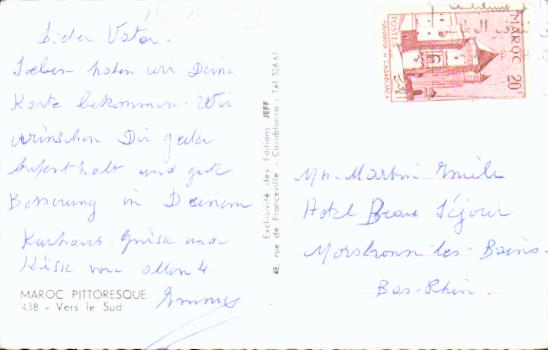 Lieber Vater.
Soeben haben wir Deine
Karte bekommen. Wir
wünschen Dir guten
Aufenthalt und gute
Besserung in Deinem
Kurhaus. Grüsse und
Küsse von allen 4
MAROC PITTORESQUE
438 - Vers le Sud
Exclusivité des Editions JEFF
48, rue de Franceville - Casablanca - Tel. 526.61
POSTES
MAROC
20F
MAHAKMA DE CASABLANCA
Mr. Martin Emile
Hotel Beau Séjour
Morsbronn les-Bains.
Bas-Rhin.